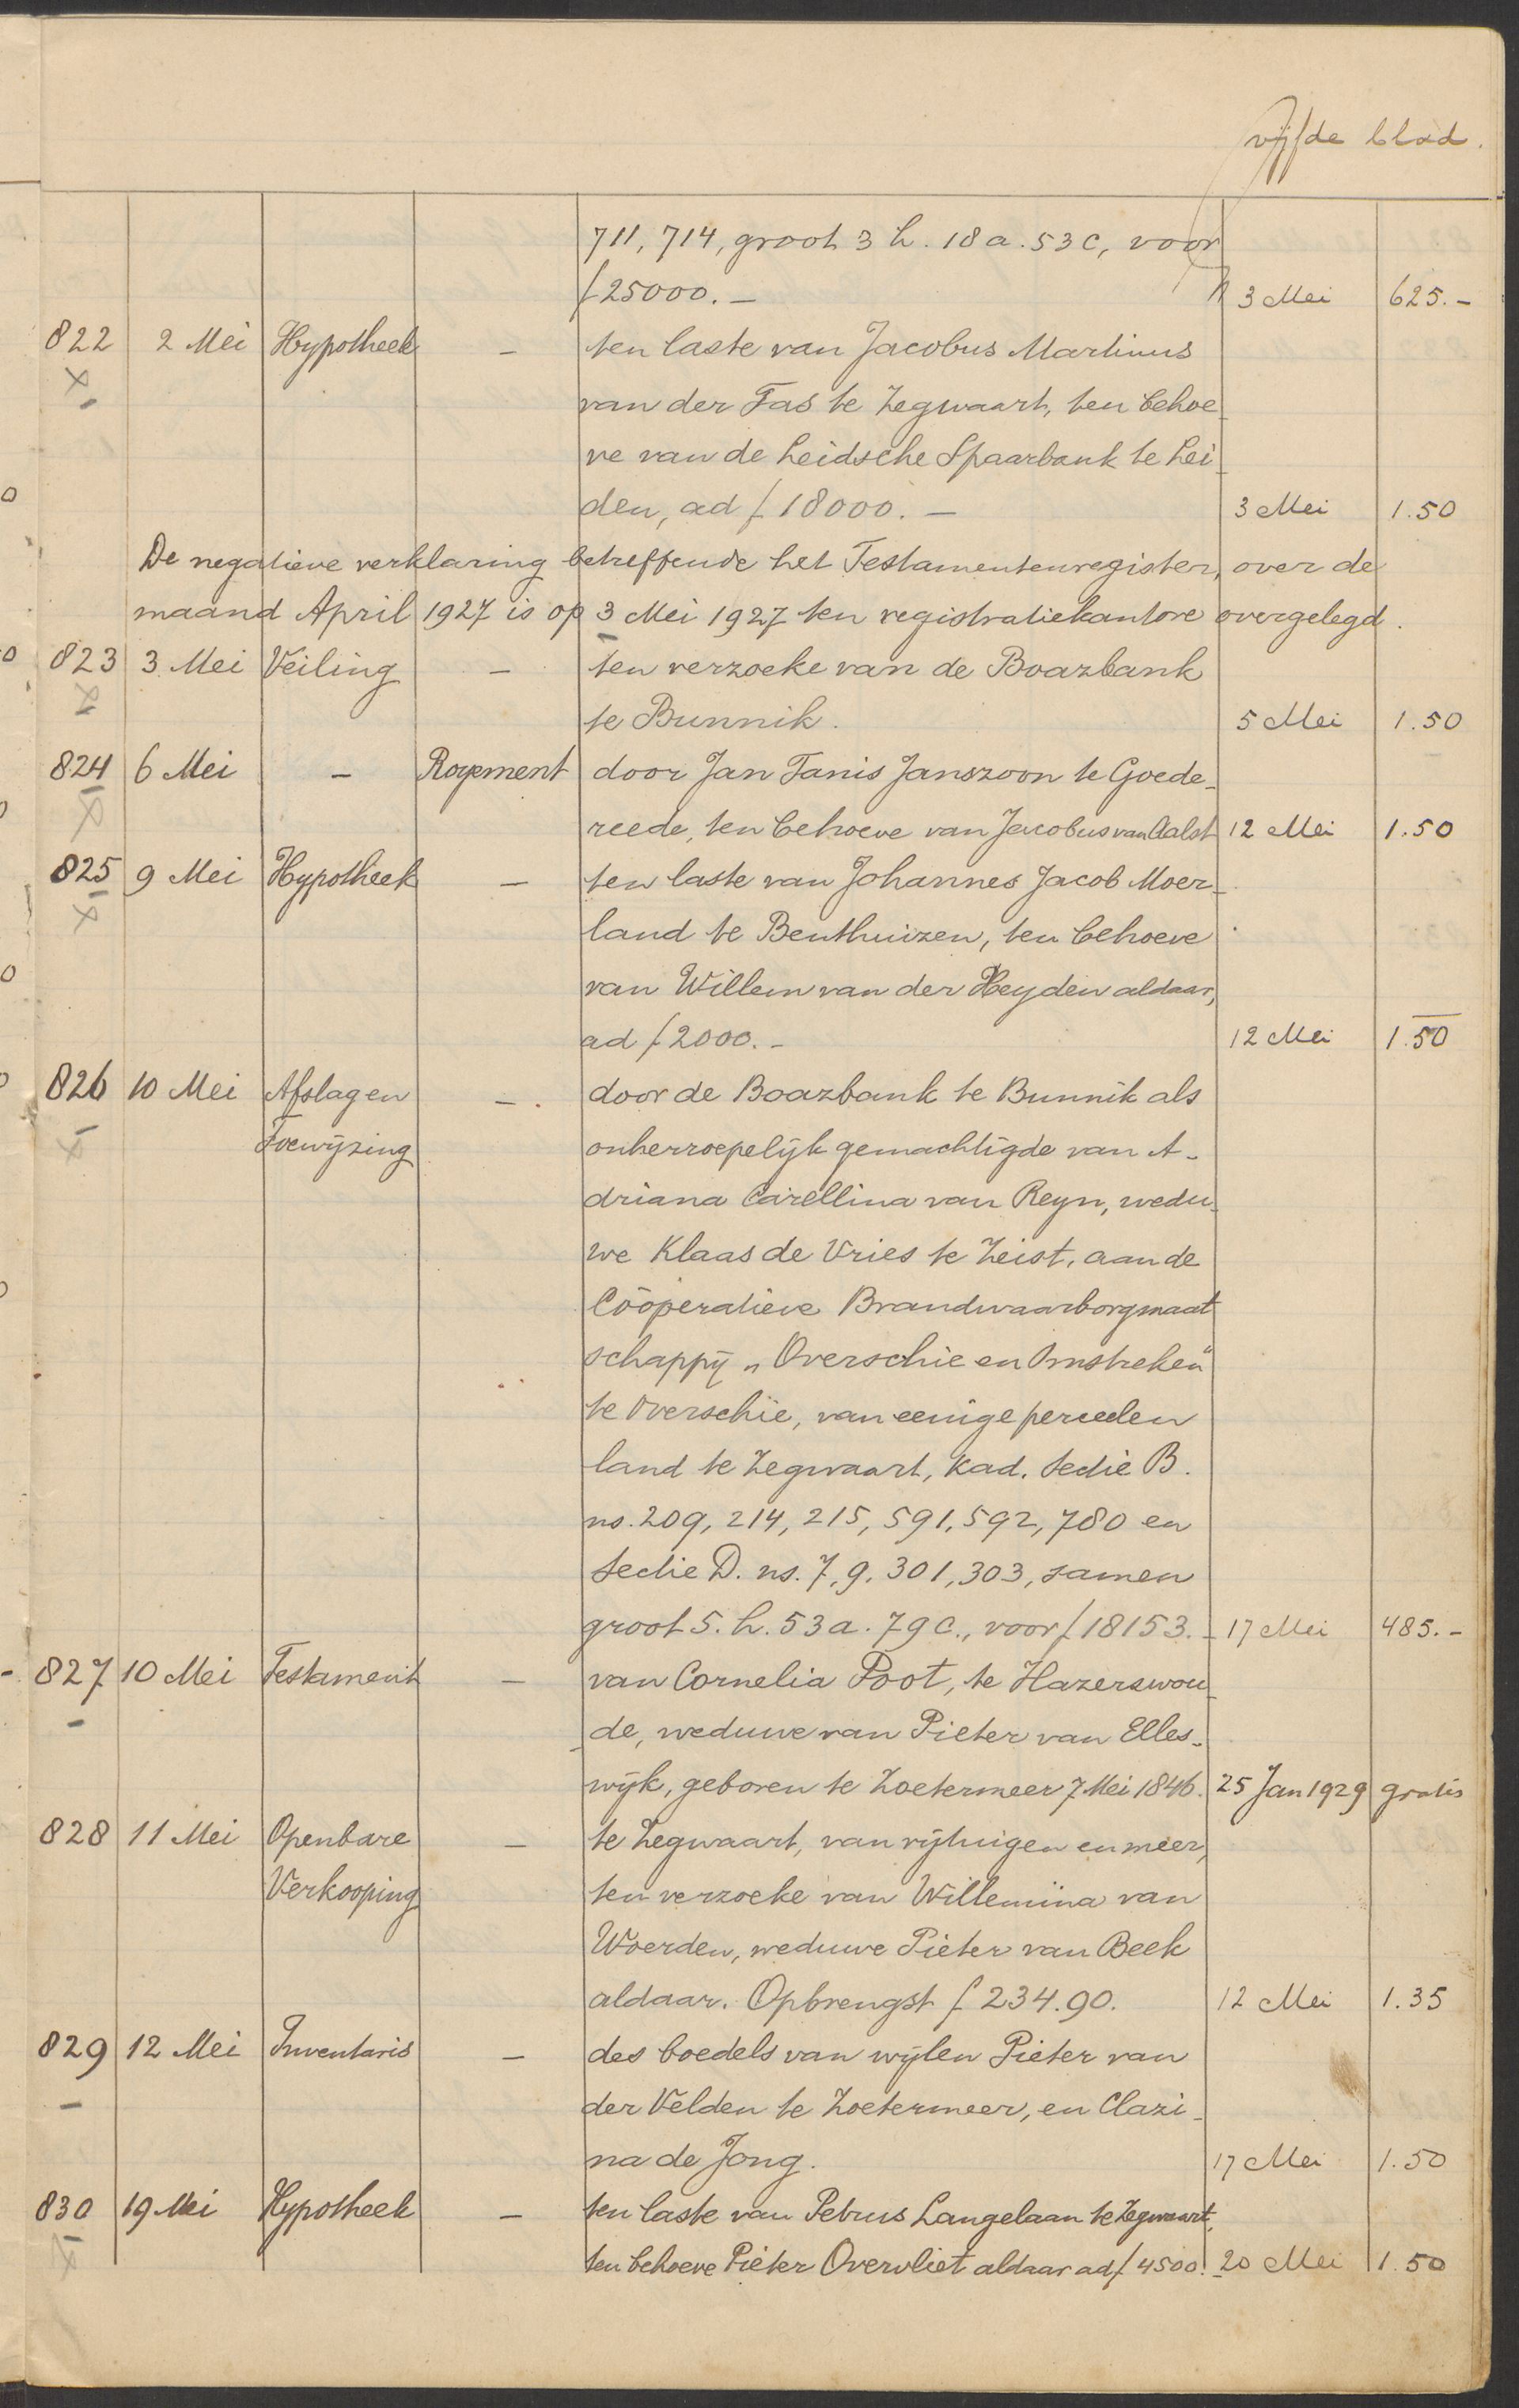 vijfde blad.
711, 714, groot 3 h. 18 a. 53 c, voor
f 25000.— 3 Mei 625.-
822 2 Mei Hypotheek — ten laste van Jacobus Martinus
van der Tas te Zegwaart, ten behoe-
ve van de Leidsche Spaarbank te Lei-
den, ad f 18000.— 3 Mei 1.50
De negatieve verklaring betreffende het Testamentenregister, over de
maand April 1927 is op 3 Mei 1927 ten registratiekantore overgelegd.
823 3 Mei Veiling — ten verzoeke van de Boazbank
te Bunnik. 5 Mei 1.50
824 6 Mei — Royement door Jan Tanis Janszoon te Goede-
reede, ten behoeve van Jacobus van Aalst 12 Mei 1.50
825 9 Mei Hypotheek — ten laste van Johannes Jacob Moer-
land te Benthuizen, ten behoeve
van Willem van der Heyden aldaar,
ad f 2000.- 12 Mei 1.50
826 10 Mei Afslag en — door de Boazbank te Bunnik als
Toewijzing onherroepelijk gemachtigde van A-
driana Carellina van Reyn, wedu-
we Klaas de Vries te Zeist, aan de
Coöperatieve Brandwaarborgmaat
schappij „Overschie en Omstreken"
te Overschie, van eenige perceelen
land te Zegwaart, kad. Sectie B.
ns. 209, 214, 215, 591, 592, 780 en
Sectie D. ns. 7, 9, 301, 303, samen
groot 5. h. 53 a. 79 c., voor f 18153.- 17 Mei 485.-
827 10 Mei Testament — van Cornelia Poot, te Hazerswou-
de, weduwe van Pieter van Elles-
wijk, geboren te Zoetermeer 7 Mei 1846. 25 Jan 1929 gratis
828 11 Mei Openbare — te Zegwaart, van rijtuigen en meer,
Verkooping ten verzoeke van Willemina van
Woerden, weduwe Pieter van Beek
aldaar. Opbrengst f 234.90. 12 Mei 1.35
829 12 Mei Inventaris — des boedels van wijlen Pieter van
der Velden te Zoetermeer, en Clazi-
na de Jong. 17 Mei 1.50
830 19 Mei Hypotheek — ten laste van Petrus Langelaan te Zegwaart,
ten behoeve Pieter Overvliet aldaar ad f 4500.- 20 Mei 1.50